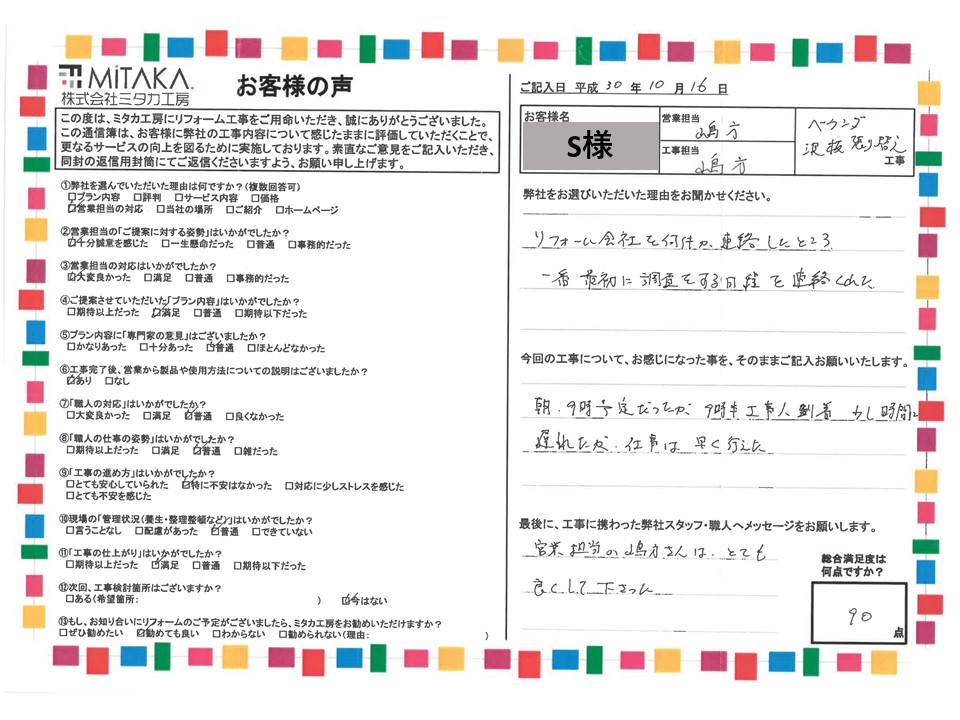 MiTAKA.
株式会社ミタカ工房
お客様の声
この度は、ミタカ工房にリフォーム工事をご用命いただき、誠にありがとうございました。
この通信簿は、お客様に弊社の工事内容について感じたままに評価していただくことで、
更なるサービスの向上を図るために実施しております。素直なご意見をご記入いただき、
同封の返信用封筒にてご返信くださいますよう、お願い申し上げます。
①弊社を選んでいただいた理由は何ですか?(複数回答可)
□プラン内容 □評判 □サービス内容 □価格
☑営業担当の対応 □当社の場所 □ご紹介 □ホームページ
②営業担当の「ご提案に対する姿勢」はいかがでしたか?
☑十分誠意を感じた □一生懸命だった □普通 □事務的だった
③営業担当の対応はいかがでしたか?
☑大変良かった □満足 □普通 □事務的だった
④ご提案させていただいた「プラン内容」はいかがでしたか?
□期待以上だった ☑満足 □普通 □期待以下だった
⑤プラン内容に「専門家の意見」はございましたか?
□かなりあった □十分あった ☑普通 □ほとんどなかった
⑥工事完了後、営業から製品や使用方法についての説明はございましたか?
☑あり □なし
⑦「職人の対応」はいかがでしたか?
□大変良かった □満足 ☑普通 □良くなかった
⑧「職人の仕事の姿勢」はいかがでしたか?
□期待以上だった □満足 ☑普通 □雑だった
⑨「工事の進め方」はいかがでしたか?
□とても安心していられた ☑特に不安はなかった □対応に少しストレスを感じた
□とても不安を感じた
⑩現場の「管理状況(養生・整理整頓など)」はいかがでしたか?
□言うことなし □配慮があった ☑普通 □できていない
⑪「工事の仕上がり」はいかがでしたか?
□期待以上だった ☑満足 □普通 □期待以下だった
⑫次回、工事検討箇所はございますか?
□ある(希望箇所: ) ☑今はない
⑬もし、お知り合いにリフォームのご予定がございましたら、ミタカ工房をお勧めいただけますか?
□ぜひ勧めたい ☑勧めても良い □わからない □勧められない(理由: )
ご記入日 平成 30 年 10 月 16 日
お客様名
S様
営業担当
嶋方
工事担当
嶋方
ベランダ
床板 張り替え
工事
弊社をお選びいただいた理由をお聞かせください。
リフォーム会社を何件か連絡したところ
一番最初に調査をする日程を連絡くれた
今回の工事について、お感じになった事を、そのままご記入お願いいたします。
朝、9時予定だったが 9時半工事人到着 少し時間に
遅れたが、仕事は早く行えた
最後に、工事に携わった弊社スタッフ・職人へメッセージをお願いします。
営業担当の嶋方さんは、とても
良くして下さった
総合満足度は
何点ですか?
90
点